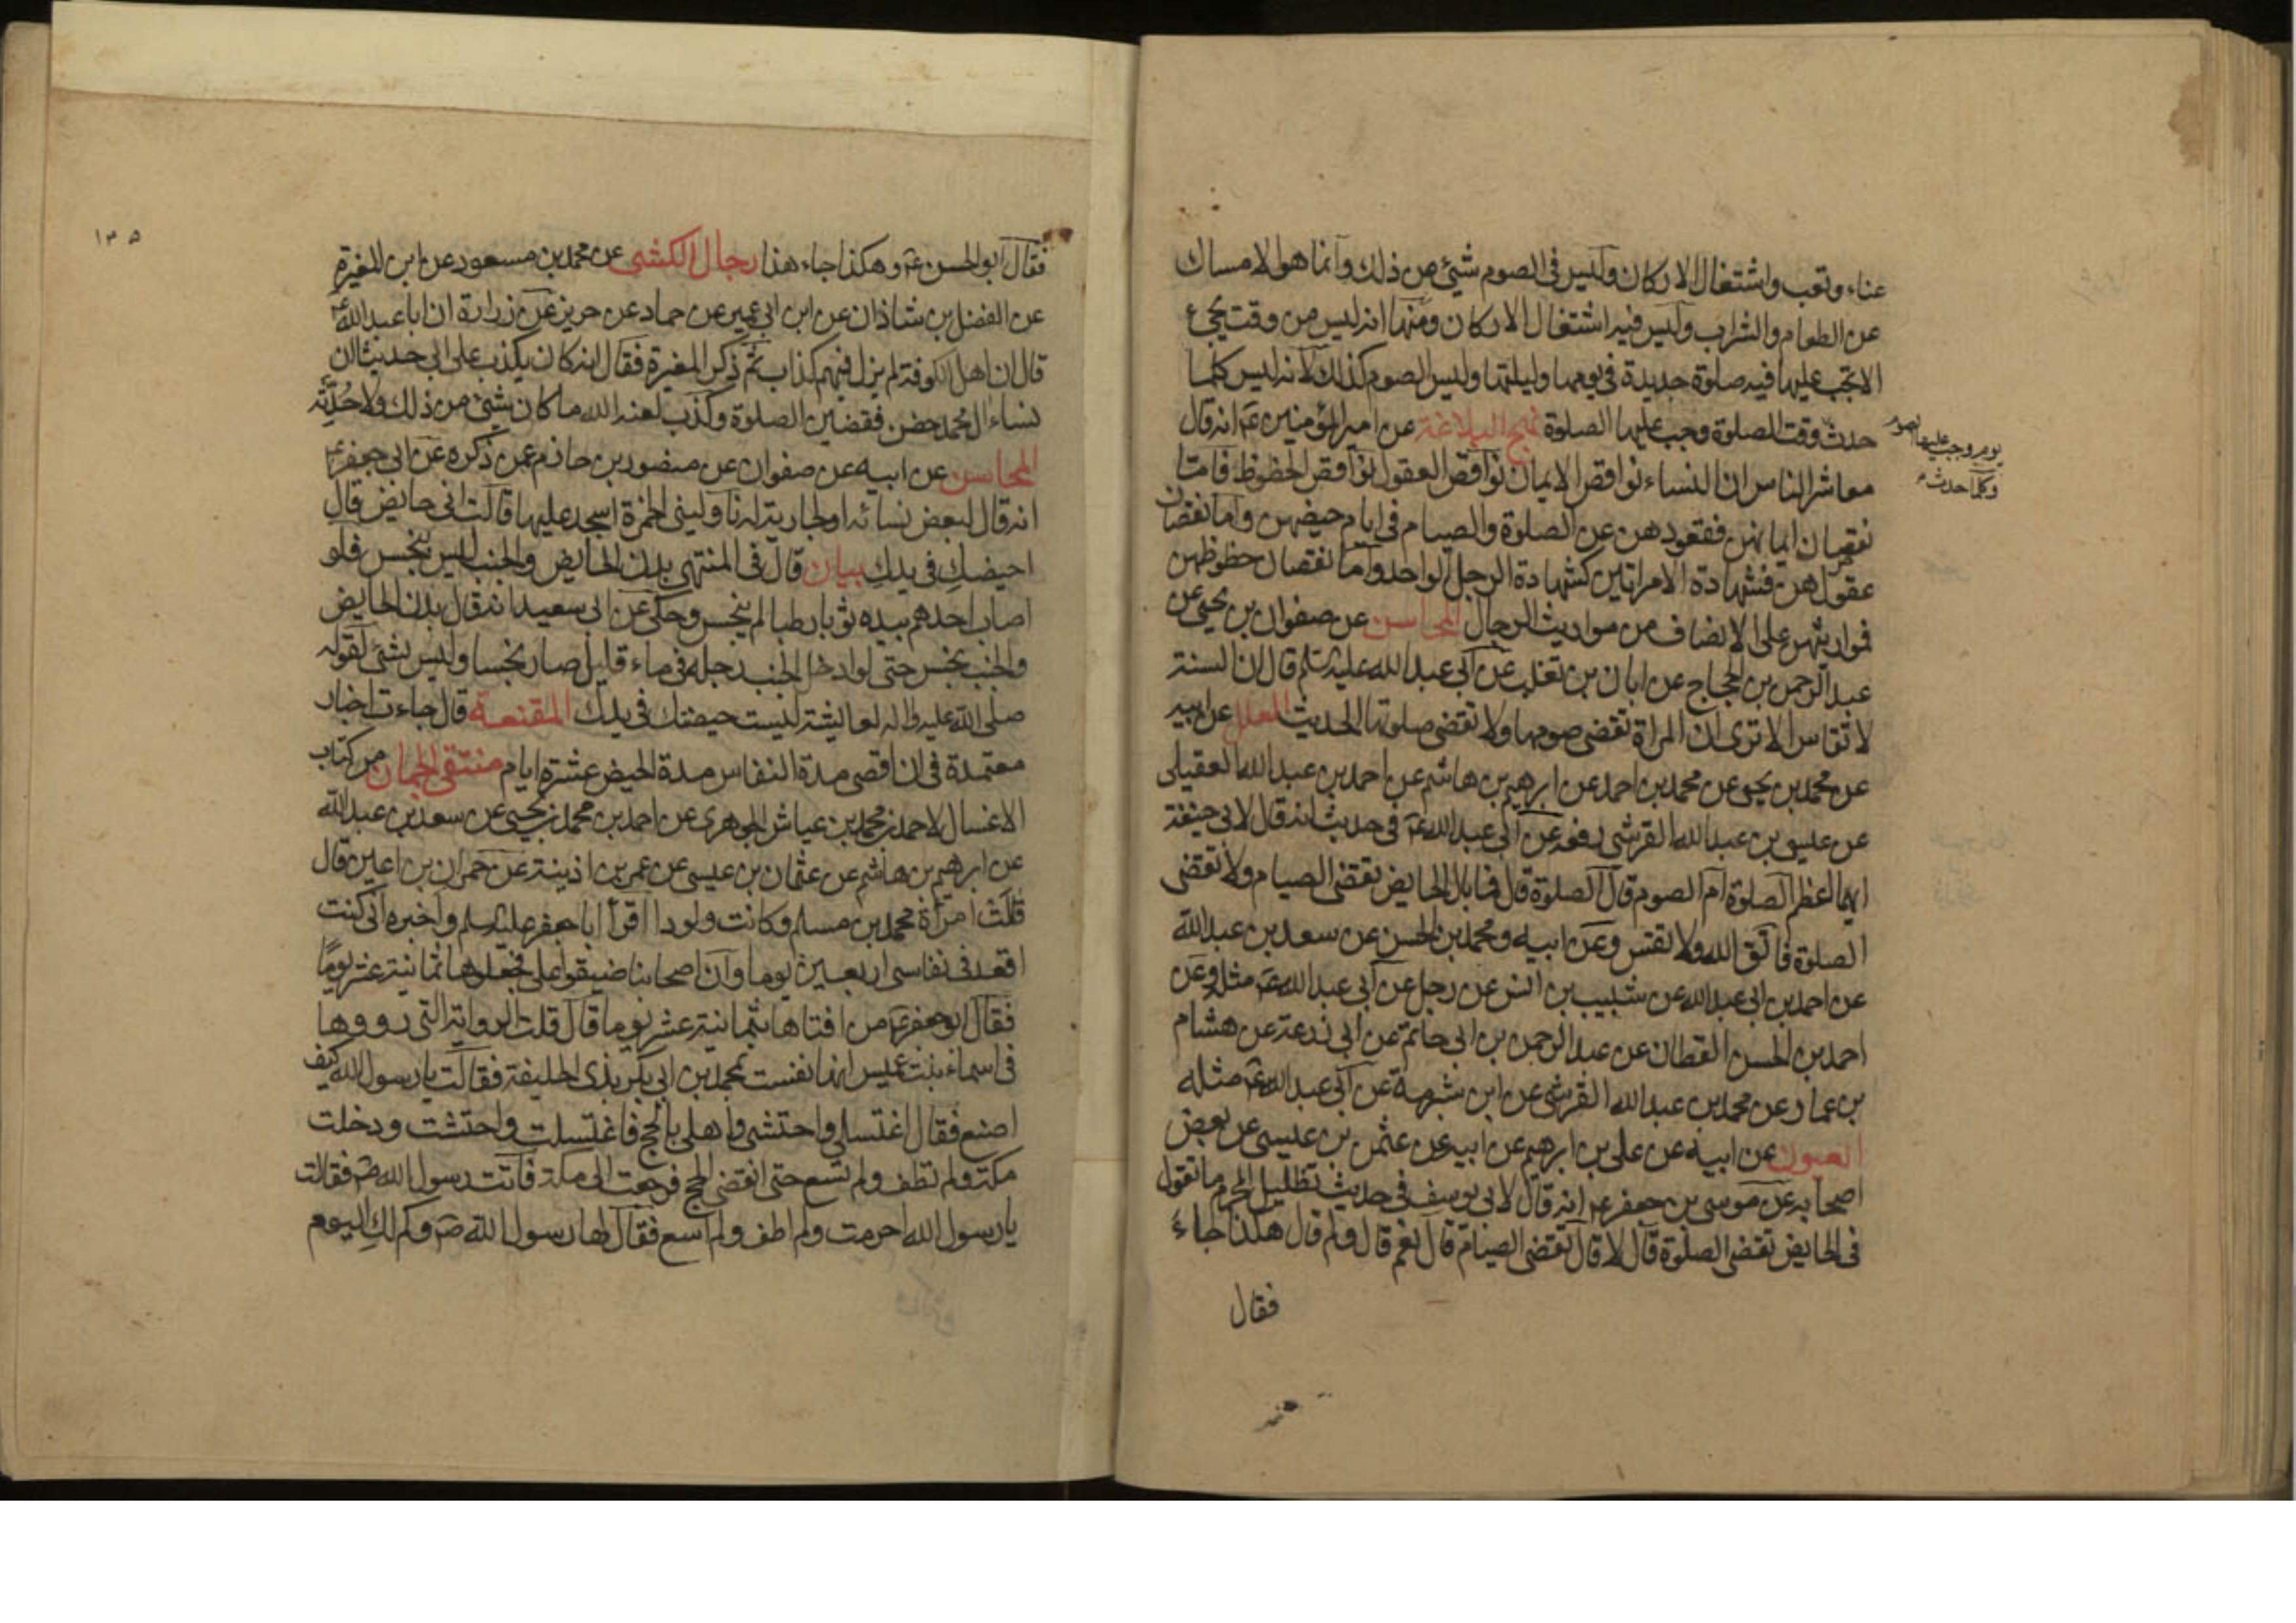 عناء وتعب واشتغال الاركان وليس فى الصوم شيئ من ذلك وانما هو الامساك
عن الطعام والشراب وليس فيه اشتغال الاركان ومنها انه ليس من وقت يجئ
الا تجب عليها فيه صلوة جديدة فى يومها وليلتها وليس الصوم كذلك لانه ليس كلما
حدث وقت الصلوة وجب عليها الصلوة نهج البلاغة عن امير المؤمنين ع انه قال
يوم وجب عليها الصوم
وكلما حدث
معاشر الناس ان النساء نواقص الايمان نواقص العقول نواقص الحظوظ فامتا
نقصان ايمانهن فقعودهن عن الصلوة والصيام فى ايام حيضهن واما نقصان
عقولهن فشهادة الامراتين كشهادة الرجل الواحد واما نقصان حظوظهن
فمواريثهن على الانصاف من مواريث الرجال المحاسن عن صفوان بن يحيى عن
عبد الرحمن بن الحجاج عن ابان بن تغلب عن ابى عبد الله عليه السلم قال ان السنة
لا تقاس الا ترى ان المراة تقضى صومها ولا تقضى صلوتها الحديث العلل عن ابيه
عن محمد بن يحيى عن محمد بن احمد عن ابرهيم بن هاشم عن احمد بن عبد الله العقيلى
عن عيسى بن عبد الله القرشى رفعه عن ابى عبد الله ع فى حديث انه قال لابى حنيفة
ايما اعظم الصلوة ام الصوم قال الصلوة قال فما بال الحايض تقضى الصيام ولا تقضى
الصلوة فاتق الله ولا تقس وعن ابيه ومحمد بن الحسن عن سعد بن عبد الله
عن احمد بن ابى عبد الله عن شبيب بن انس عن رجل عن ابى عبد الله ع مثله وعن
احمد بن الحسن القطان عن عبد الرحمن بن ابى حاتم عن ابى زرعة عن هشام
بن عمار عن محمد بن عبد الله القرشى عن ابن شبرمة عن ابى عبد الله ع مثله
العيون عن ابيه عن على بن ابرهيم عن ابيه عن عثمن بن عيسى عن بعض
اصحابه عن موسى بن جعفر ع انه قال لابى يوسف فى حديث تظليل المحرم ما تقول
فى الحايض تقضى الصلوة قال لا قال تقضى الصيام قال نعم قال ولم قال هكذا جاء
فقال
١٣٥
فقال ابو الحسن ع وهكذا جاء هذا رجال الكشى عن محمد بن مسعود عن ابن المغيرة
عن الفضل بن شاذان عن ابن ابى عمير عن حماد عن حريز عن زرارة ان ابا عبد الله ع
قال ان اهل الكوفة لم يزل فيهم كذاب ثم ذكر المغيرة فقال انه كان يكذب على ابى حديث ان
نساء ال محمد حضن فقضين الصلوة وكذب لعنه الله ما كان شيئ من ذلك ولا حدثه
المحاسن عن ابيه عن صفوان عن منصور بن حازم عمن ذكره عن ابى جعفر ع
انه قال لبعض نسائه او لجارية له ناولينى الخمرة اسجد عليها قالت انى حايض قال
احيضك فى يدك بيان قال فى المنتهى بدن الحايض والجنب ليس بنجس فلو
اصاب احدهم بيده ثوبا رطبا لم ينجس وحكى عن ابى سعيد انه قال بدن الحايض
والجنب نجس حتى لو ادخل الجنب رجله فى ماء قليل صار نجسا وليس بشئ لقوله
صلى الله عليه واله لعايشة ليست حيضتك فى يدك المقنعة قال جاءت اخبار
معتمدة فى ان اقصى مدة النفاس مدة الحيض عشرة ايام منتقى الجمان من كتاب
الاغسال لاحمد بن محمد بن عياش الجوهرى عن احمد بن محمد بن يحيى عن سعد بن عبد الله
عن ابرهيم بن هاشم عن عثمان بن عيسى عن عمر بن اذينة عن حمران بن اعين قال
قالت امراة محمد بن مسلم وكانت ولودا اقرأ ابا جعفر عليه السلم واخبره انى كنت
اقعد فى نفاسى اربعين يوما وان اصحابنا ضيقوا على فجعلوها ثمانية عشر يوما
فقال ابو جعفر ع من افتاها بثمانية عشر يوما قال قلت الرواية التى رووها
فى اسماء بنت عميس انها نفست بمحمد بن ابى بكر بذى الحليفة فقالت يا رسول الله كيف
اصنع فقال اغتسلى واحتشى واهلى بالحج فاغتسلت واحتشت ودخلت
مكة ولم تطف ولم تسع حتى انقضى الحج فرجعت الى مكة فاتت رسول الله ص فقالت
يا رسول الله احرمت ولم اطف ولم اسع فقال لها رسول الله ص وكم لك اليوم